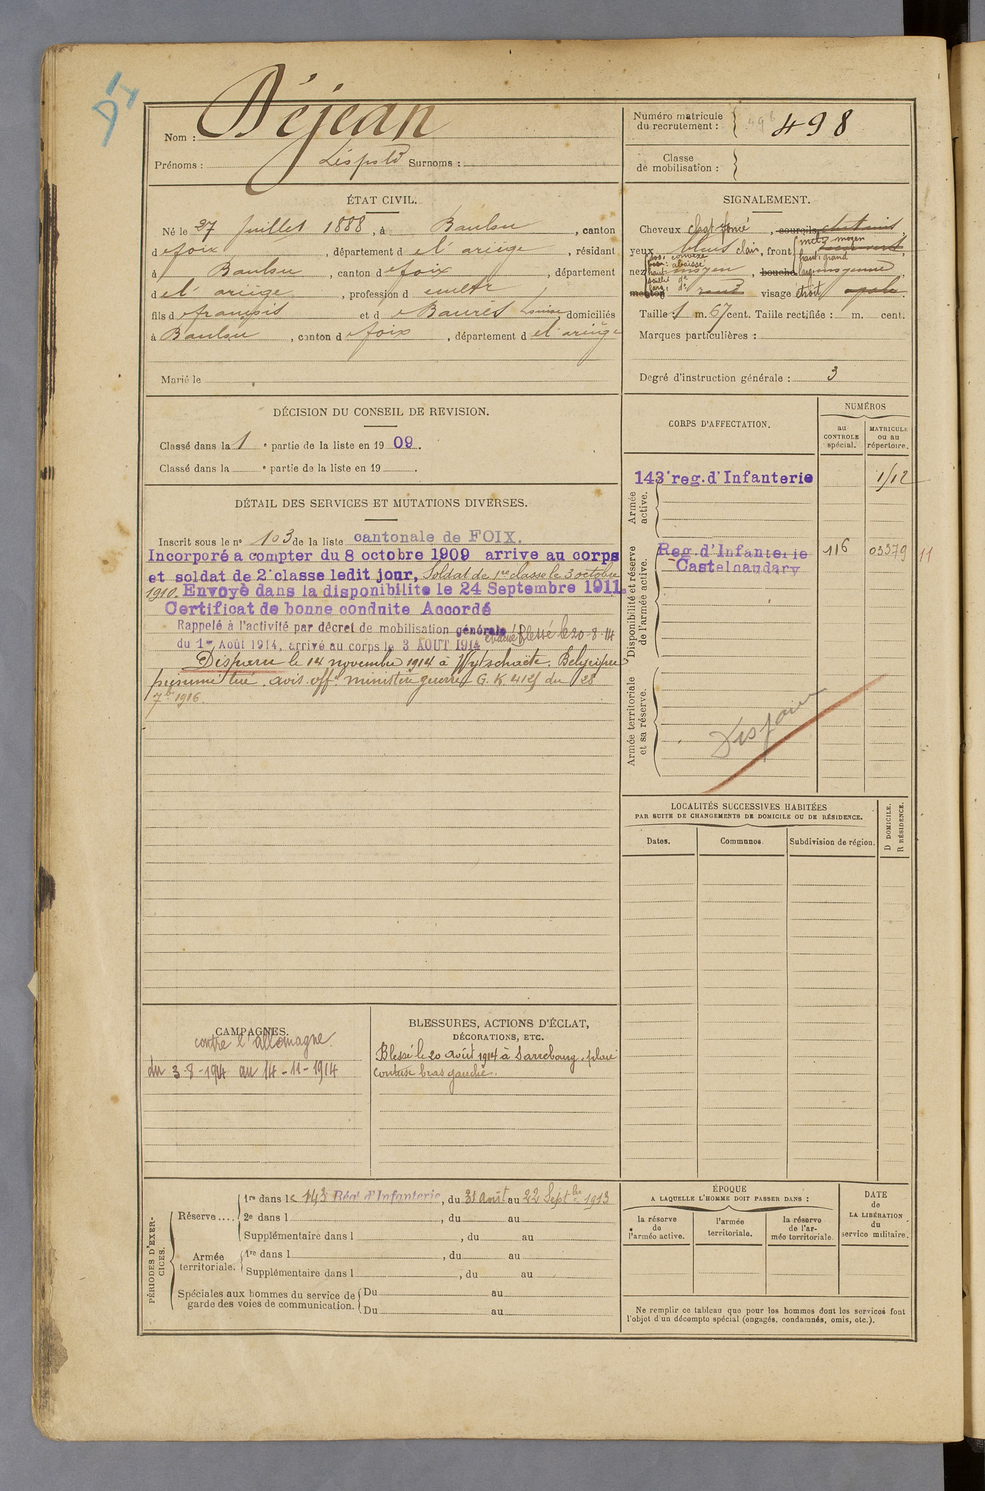 Dt
Nom : Déjean
Prénoms : Léopold Surnoms :
Numéro matricule
du recrutement : 498
Classe
de mobilisation :
ÉTAT CIVIL.
Né le 27 juillet 1888, à Baulou, canton
d e foix, département d e l'ariège, résidant
à Baulou, canton d e foix, département
d e l'ariège, profession d cultr
fils d e françois et d e Baurès Louise domiciliés
à Baulou, canton d e foix, département d e l'ariège
Marié le
SIGNALEMENT.
Cheveux chat foncé, sourcils chatains
yeux bleus clair, front
nez moyen, bouche moyenne
menton rond visage étroit ovale.
Taille : 1 m. 67 cent. Taille rectifiée : m. cent.
Marques particulières :
Degré d'instruction générale : 3
DÉCISION DU CONSEIL DE REVISION.
Classé dans la 1 e partie de la liste en 1909.
Classé dans la e partie de la liste en 19 .
CORPS D'AFFECTATION.
NUMÉROS
au
CONTROLE
spécial.
MATRICULE
ou au
répertoire.
Armée
active.
143e reg. d'Infanterie
Disponibilité et réserve
de l'armée active.
Reg. d'Infanterie 116 03379 11
Castelnaudary
Armée territoriale
et sa réserve.
Disparu
DÉTAIL DES SERVICES ET MUTATIONS DIVERSES.
Inscrit sous le n° 103 de la liste cantonale de FOIX.
Incorporé a compter du 8 octobre 1909 arrive au corps
et soldat de 2e classe ledit jour, Soldat de 1re classe le 3 octobre
1910. Envoyé dans la disponibilite le 24 Septembre 1911.
Certificat de bonne conduite Accordé
Rappelé à l'activité par décret de mobilisation générale
du 1er Août 1914, arrivé au corps le 3 AOUT 1914 Blessé le 20-8-14
Disparu le 14 novembre 1914 à Wytschaëte. Belgique
présumé tué. avis offel ministère guerre G. K 4121 du 28
7bre 1916
LOCALITÉS SUCCESSIVES HABITÉES
PAR SUITE DE CHANGEMENTS DE DOMICILE OU DE RÉSIDENCE.
Dates.
Communes.
Subdivision de région.
D DOMICILE.
R RÉSIDENCE.
CAMPAGNES.
contre l'allemagne
du 3-8-1914 au 14-11-1914
BLESSURES, ACTIONS D'ÉCLAT,
DÉCORATIONS, ETC.
Blessé le 20 août 1914 à Sarrebourg, plaie
contuse bras gauche.
PÉRIODES D'EXER-
CICES.
Réserve....
1re dans le 143 Rég. d'Infanterie, du 31 août au 22 Septbre 1913
2e dans l , du au
Supplémentaire dans l , du au
Armée
territoriale.
1re dans l , du au
Supplémentaire dans l , du au
Spéciales aux hommes du service de
garde des voies de communication.
Du au
Du au
ÉPOQUE
A LAQUELLE L'HOMME DOIT PASSER DANS :
la réserve
de
l'armée active.
l'armée
territoriale.
la réserve
de l'ar-
mée territoriale.
DATE
de
LA LIBÉRATION
du
service militaire.
Ne remplir ce tableau que pour les hommes dont les services font
l'objet d'un décompte spécial (engagés, condamnés, omis, etc.).